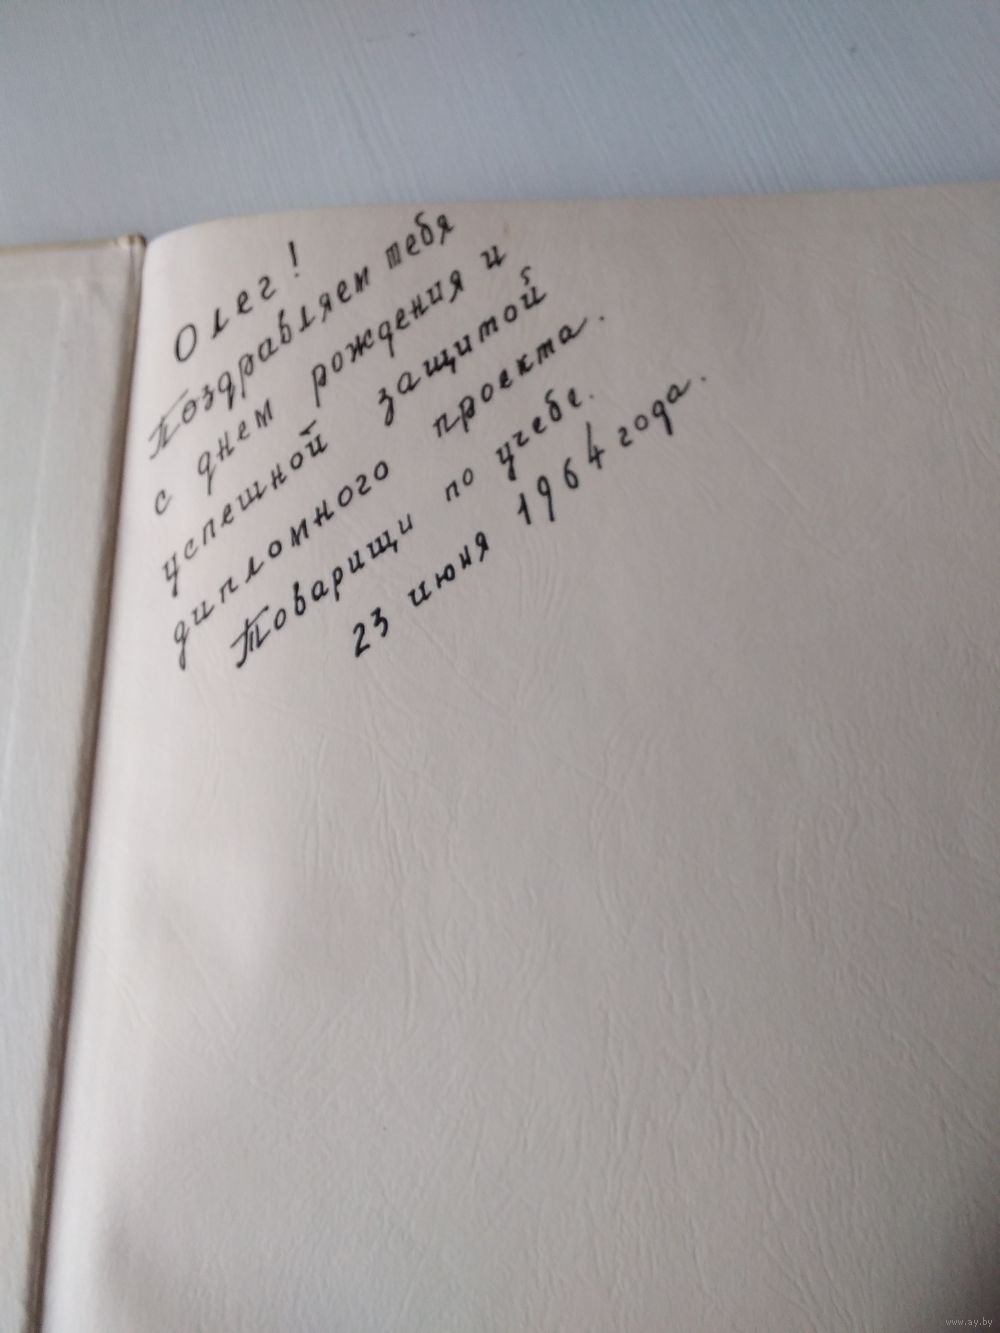 Олег!
Поздравляем тебя
с днем рождения и
успешной защитой
дипломного проекта.
Товарищи по учебе.
23 июня 1964 года.
www.ay.by